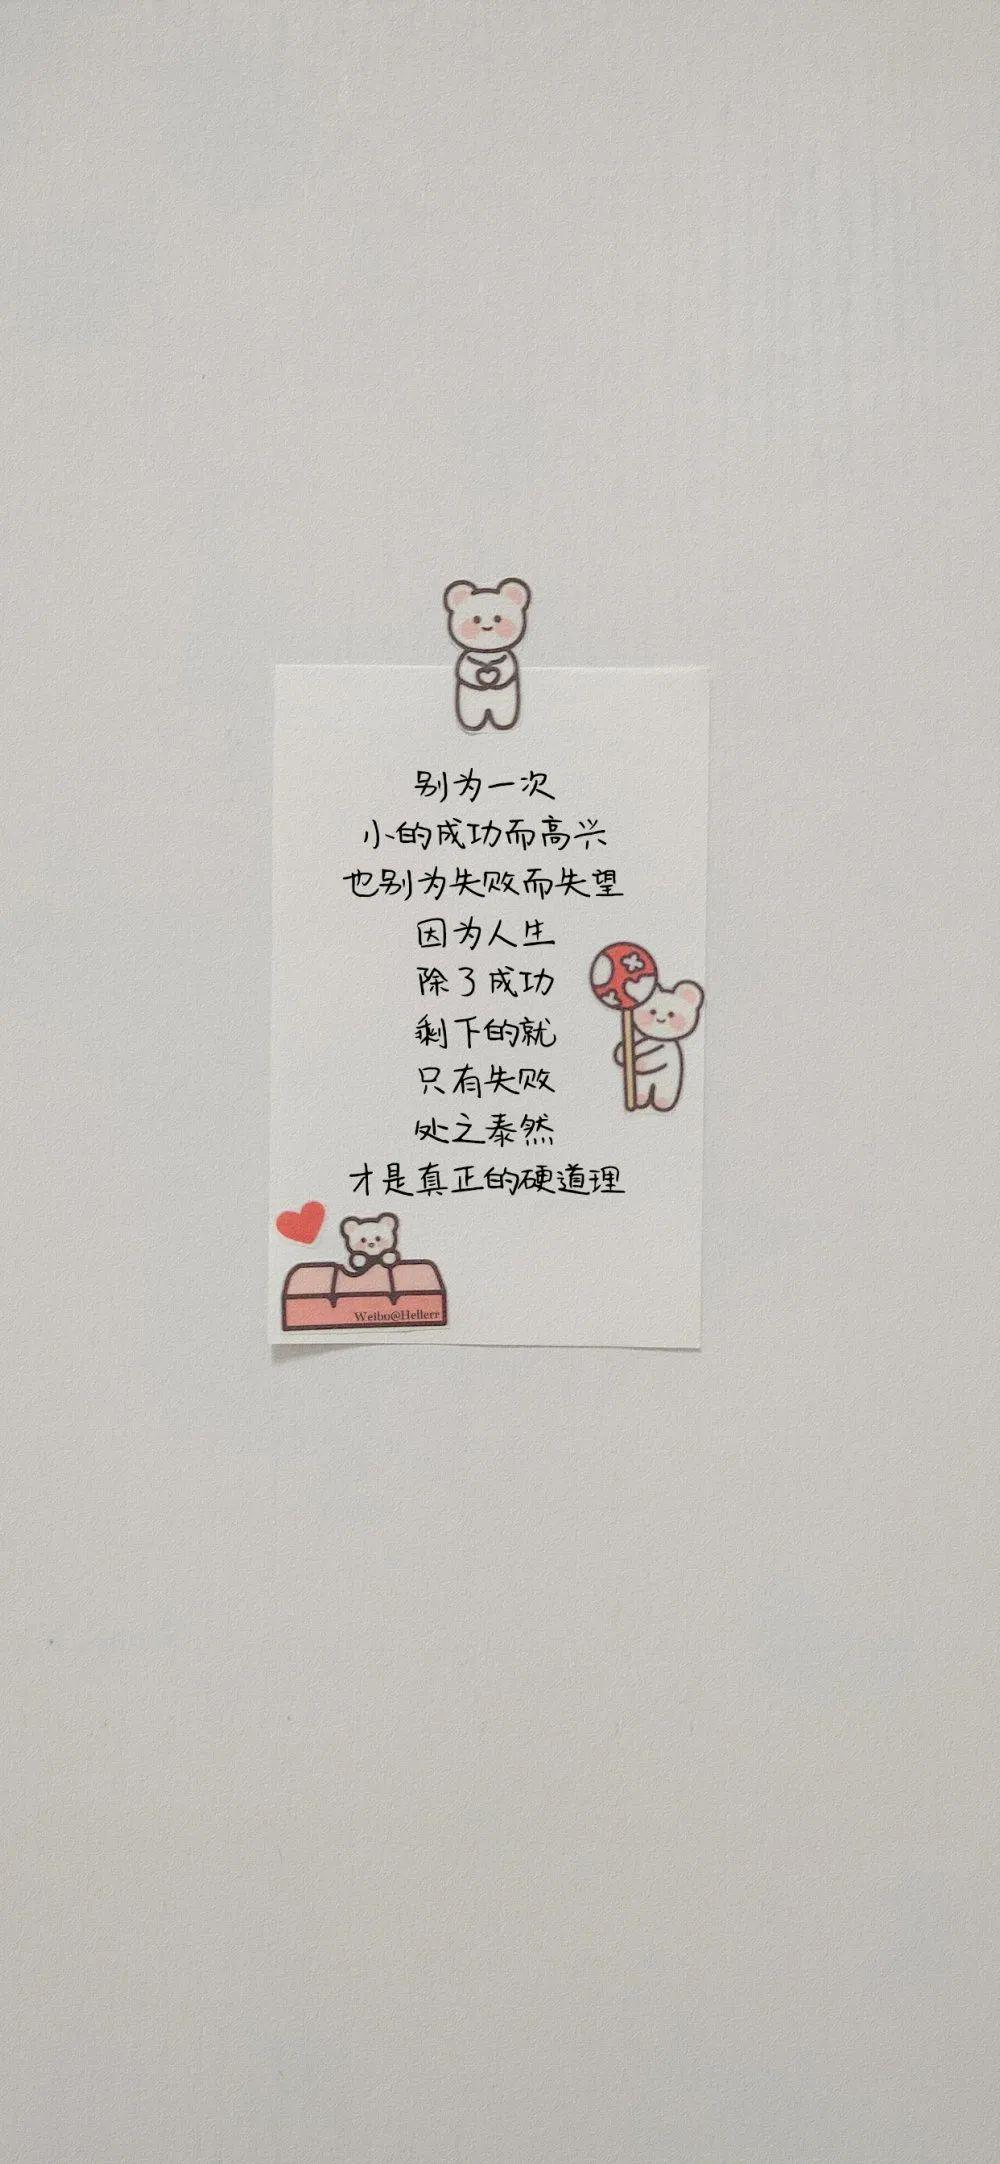 别为一次
小的成功而高兴
也别为失败而失望
因为人生
除了成功
剩下的就
只有失败
处之泰然
才是真正的硬道理
Weibo@Hellerr